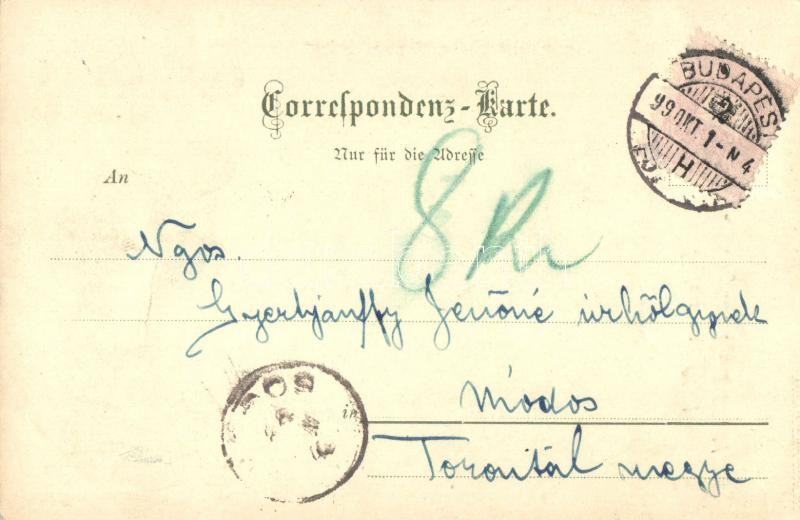 Correspondenz-Karte.
Nur für die Adresse
BUDAPEST
99 OKT. 1-N4
H
An
8
Ngos.
Gyertyánffy Jenőné úrhölgynek
in
Módos
Torontál megye